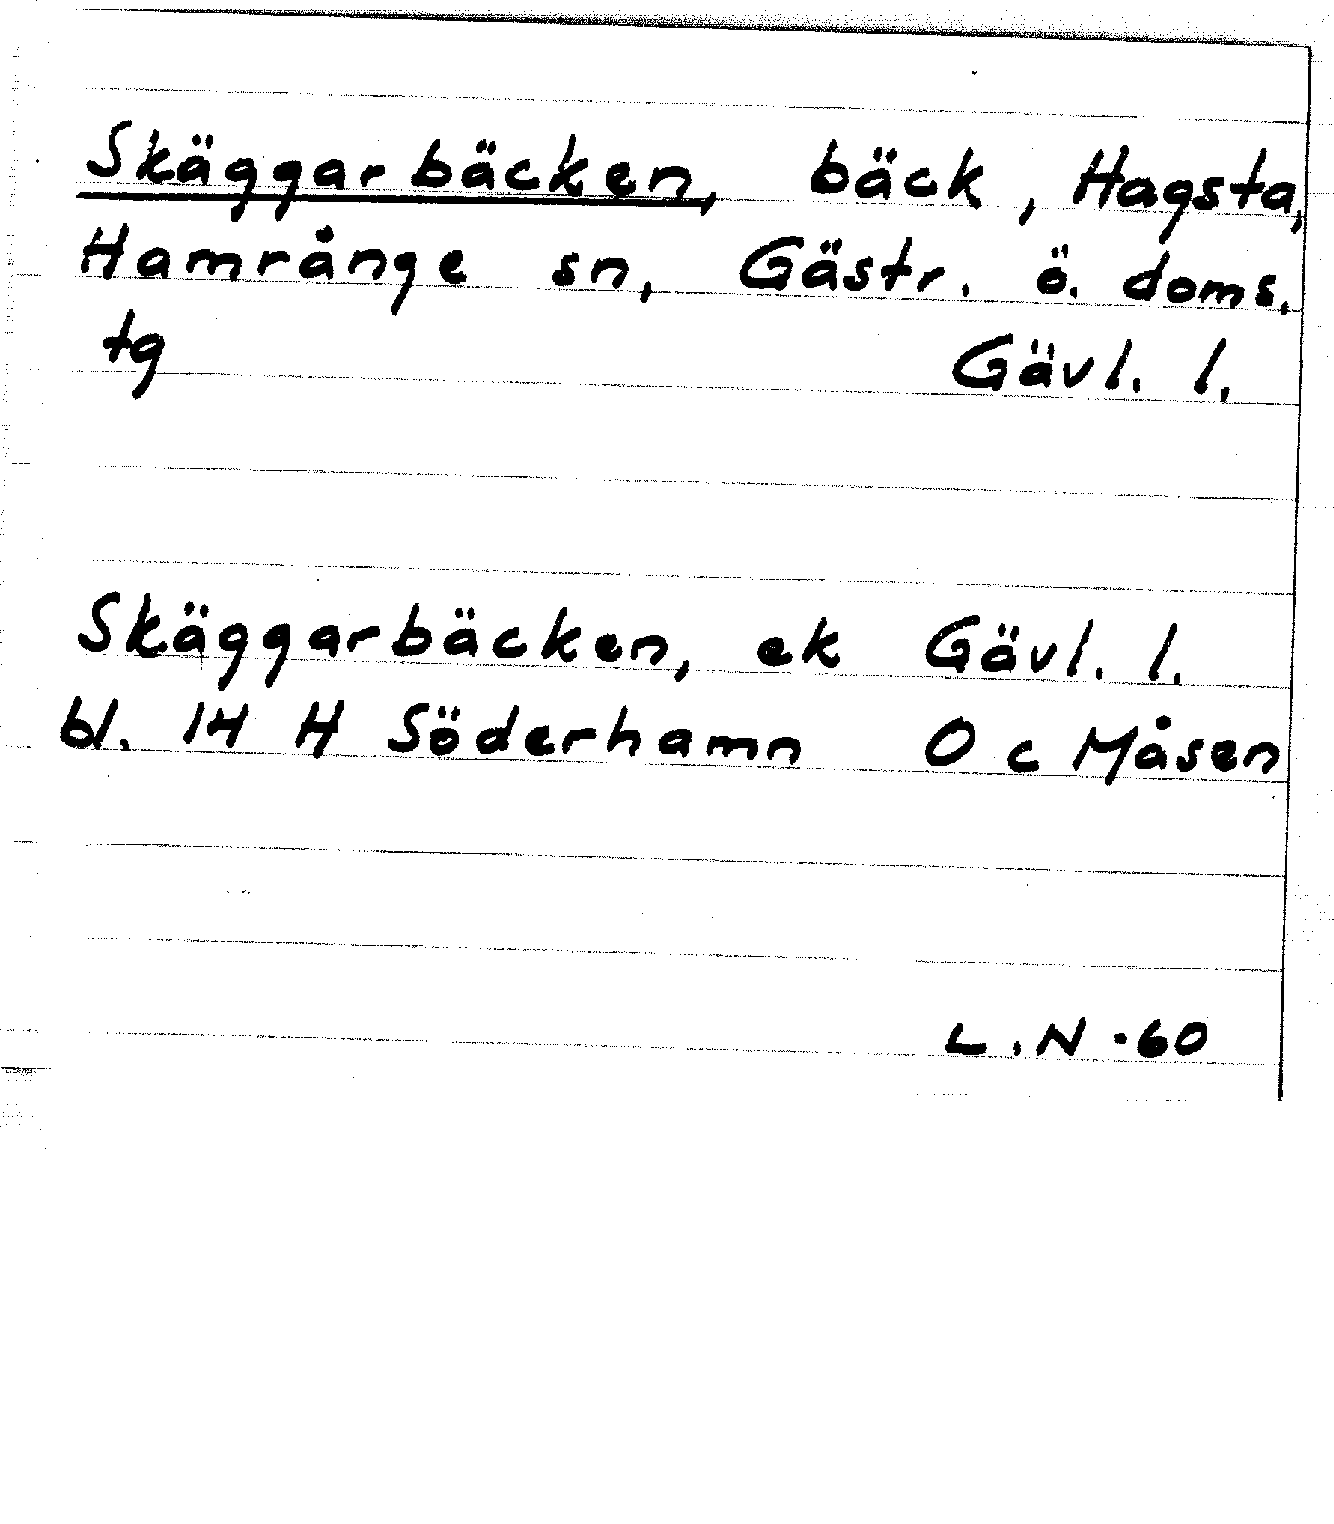 Skäggarbäcken, bäck, Hagsta,
Hamrånge sn, Gästr. ö. doms.
tg Gävl. l.
Skäggarbäcken, ek Gävl. l.
bl. 14 H Söderhamn O c Måsen
L.N.60